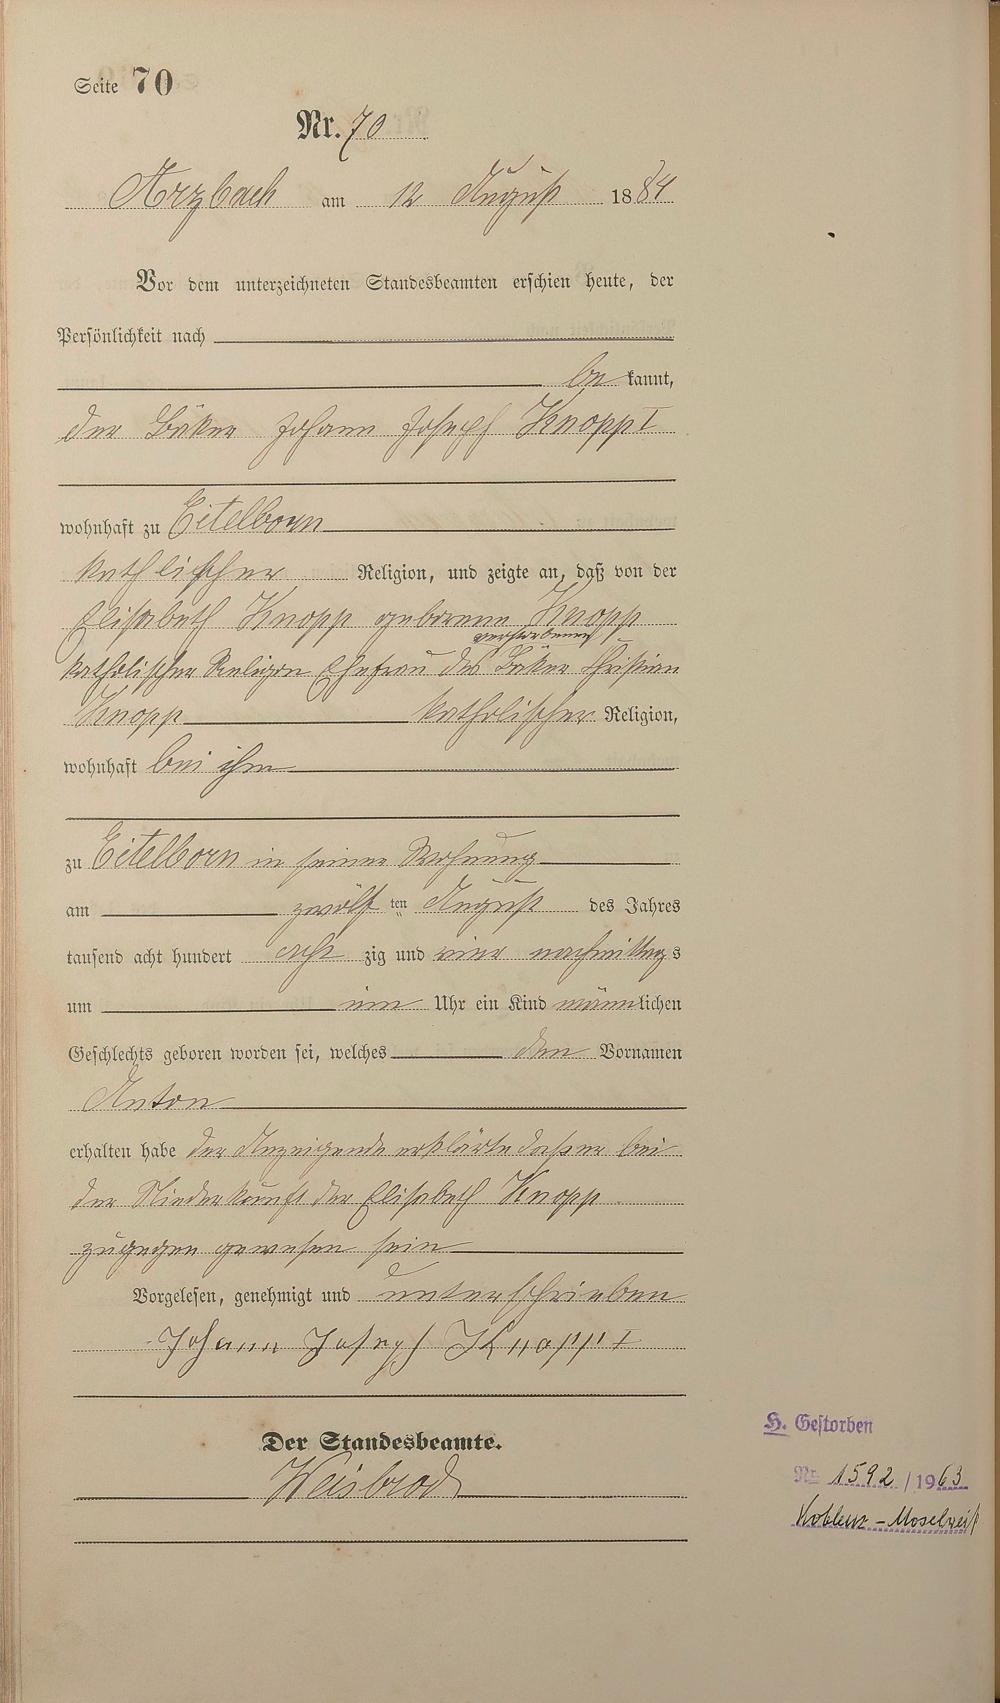 Seite 70
Nr. 70
Arzbach am 12 August 1884
Vor dem unterzeichneten Standesbeamten erschien heute, der
Persönlichkeit nach
be kannt,
der Bäker Johann Joseph Knopp I
wohnhaft zu Eitelborn
kathlischer Religion, und zeigte an, daß von der
Elisabeth Knopp geborene Knopp
verstorbenen
katholischer Religion Ehefrau des Bäker Christian
Knopp katholischer Religion,
wohnhaft bei ihm
zu Eitelborn in seiner Wohnung
am zwölf ten August des Jahres
tausend acht hundert acht zig und vier nachmittags
um ein Uhr ein Kind männlichen
Geschlechts geboren worden sei, welches den Vornamen
Anton
erhalten habe der Anzeigende erklärte daß er bei
der Niederkunft der Elisabeth Knopp
zugegen gewesen sein
Vorgelesen, genehmigt und unterschrieben
Johann Joseph Knopp I
Der Standesbeamte.
Weisbrod
H. Gestorben
Nr. 1592 / 1963
Koblenz - Moselweiß